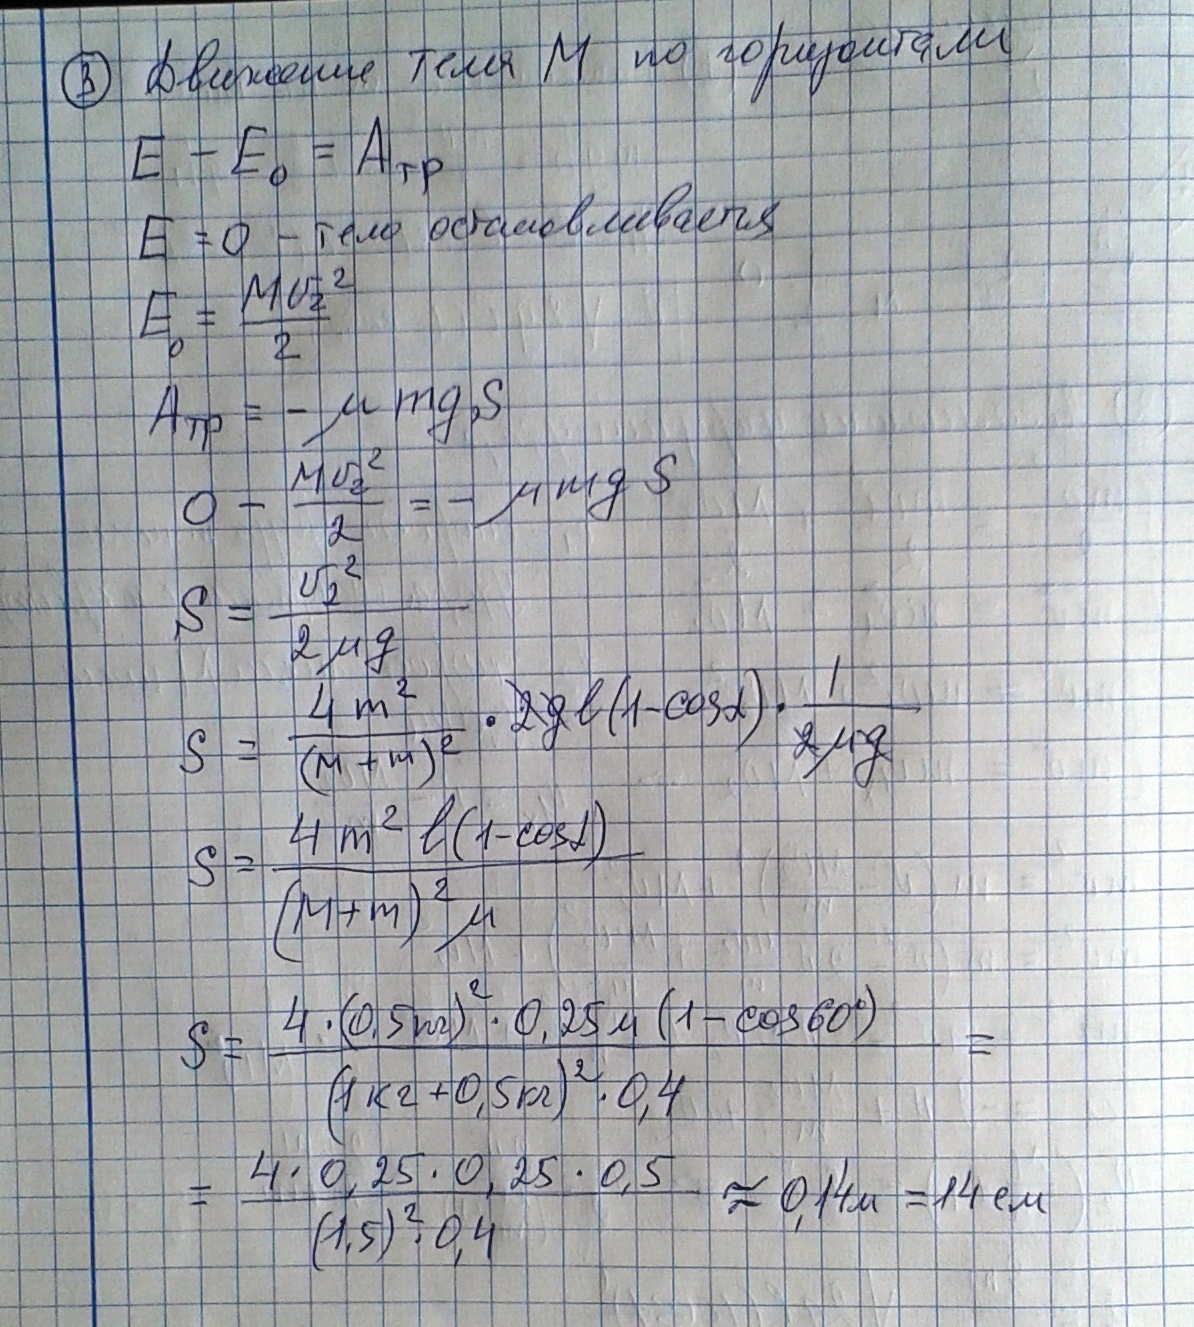 ③ Движение тела М по горизонтали
E - E₀ = Aтр
E = 0 - тело останавливается
E₀ = Mv₂²/2
Aтр = - μmgS
0 - Mv₂²/2 = - μmgS
S = v₂²/2μg
S = 4m²/(M+m)² · 2gl(1-cosα) · 1/2μg
S = 4m² l(1-cosα)/(M+m)² μ
S = 4·(0,5кг)² · 0,25м (1-cos60°)/(1кг+0,5кг)² · 0,4 =
= 4·0,25·0,25·0,5/(1,5)²·0,4 ≈ 0,14м = 14см